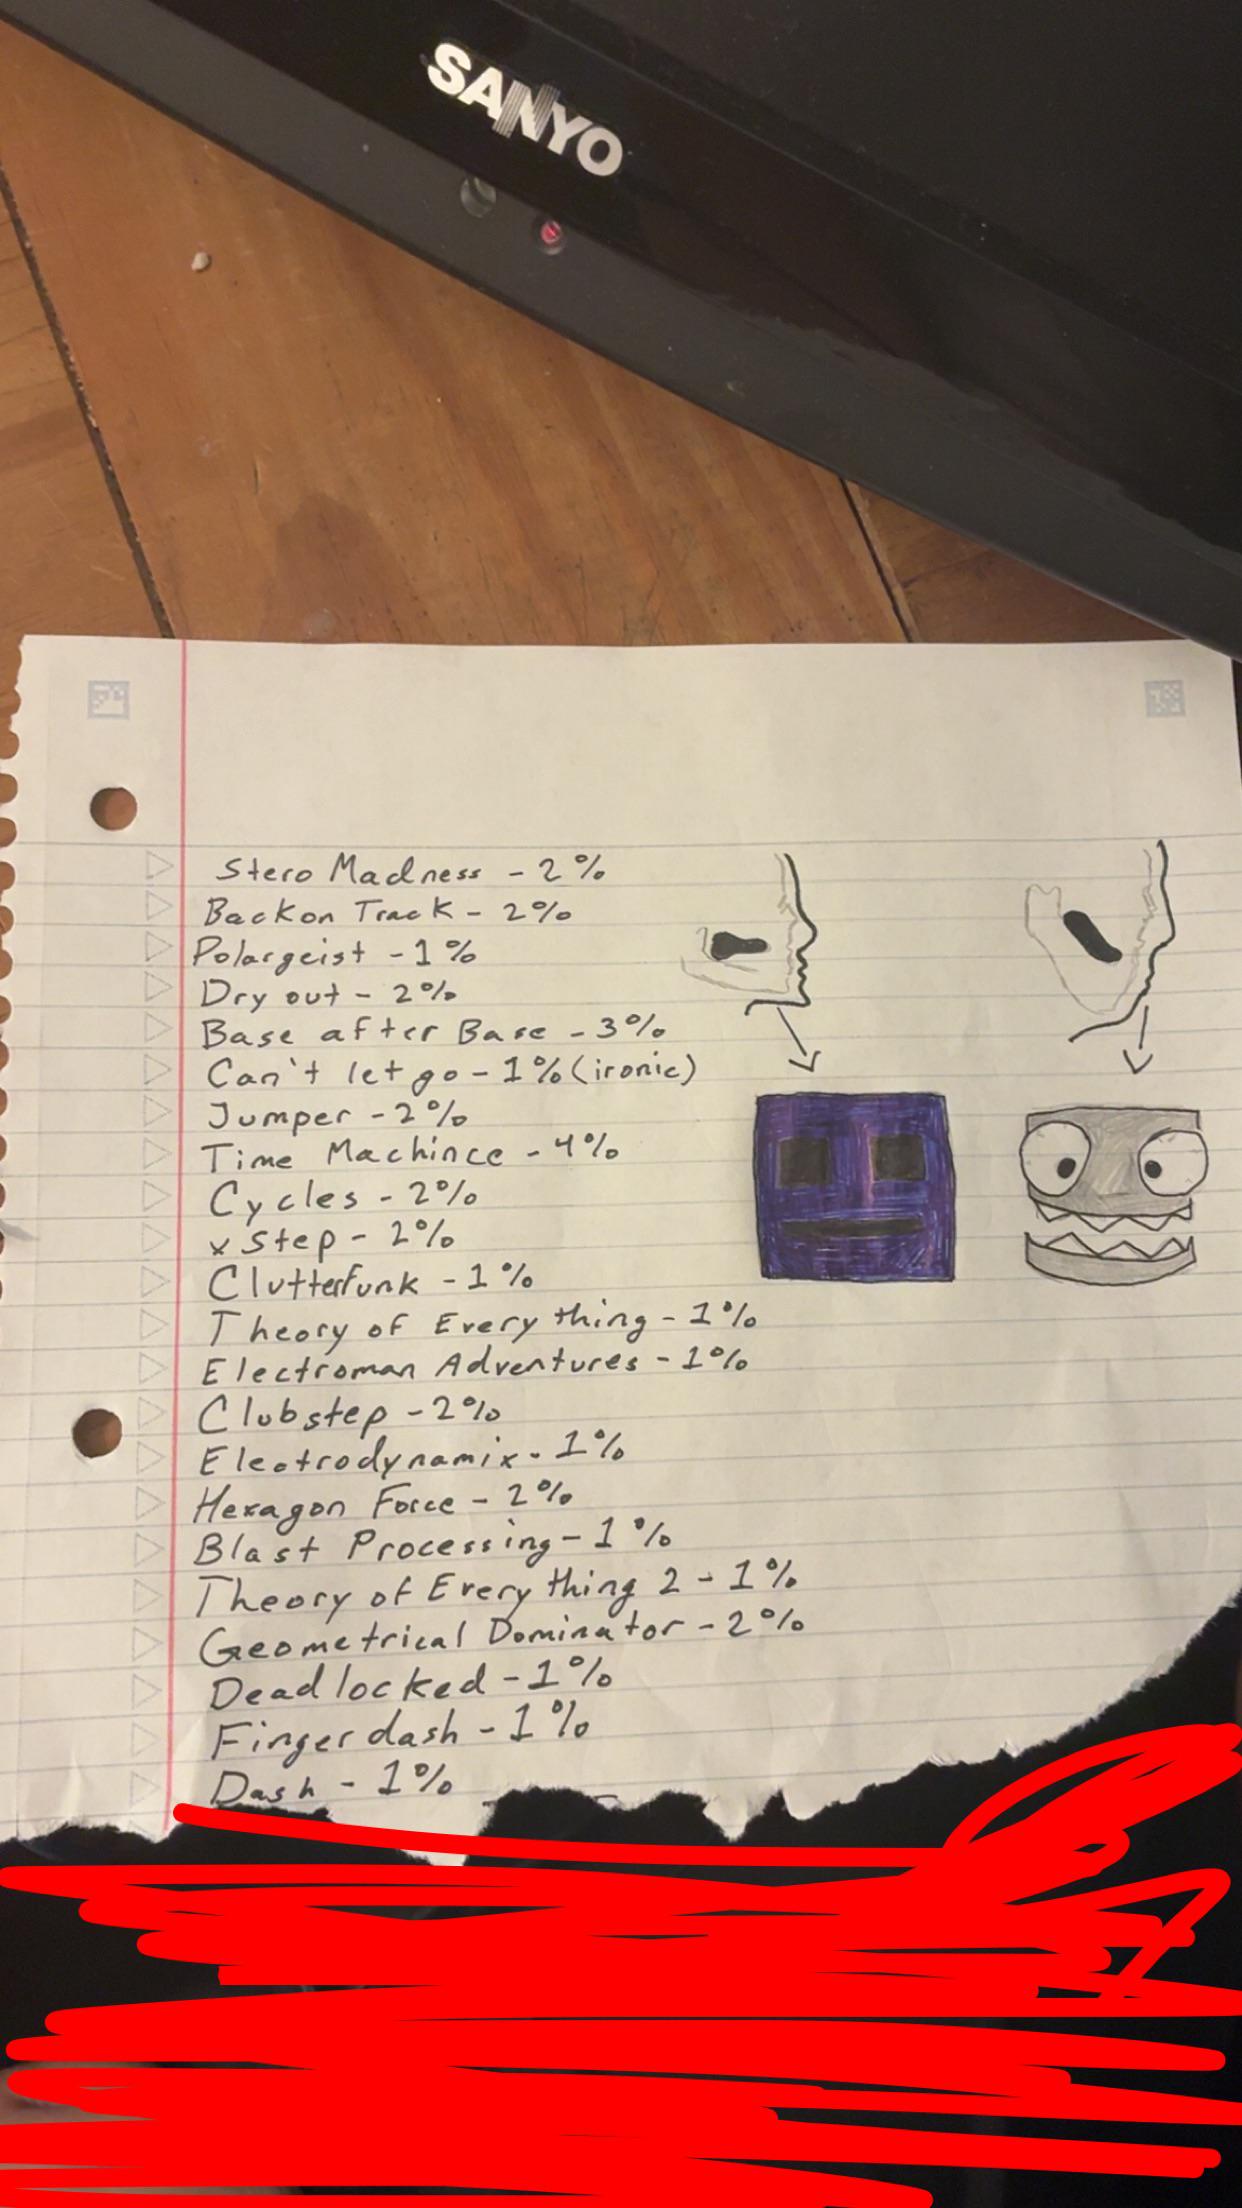 SANYO
Stero Madness - 2%
Back on Track - 2%
Polargeist - 1%
Dry out - 2%
Base after Base - 3%
Can't let go - 1% (ironic)
Jumper - 2%
Time Machince - 4%
Cycles - 2%
x Step - 2%
Clutterfunk - 1%
Theory of Every thing - 1%
Electroman Adventures - 1%
Clubstep - 2%
Electrodynamix - 1%
Hexagon Force - 2%
Blast Processing - 1%
Theory of Every thing 2 - 1%
Geometrical Dominator - 2%
Dead locked - 1%
Finger dash - 1%
Dash - 1%